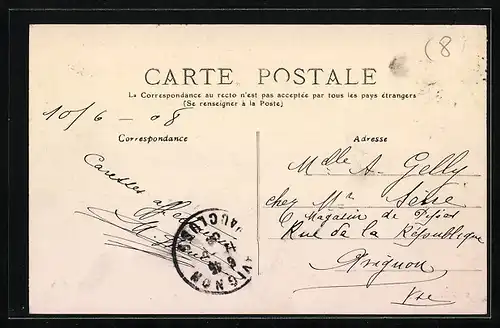 (8
CARTE POSTALE
La Correspondance au recto n'est pas acceptée par tous les pays étrangers
(Se renseigner à la Poste)
10/6 - 08
Correspondance
Adresse
Caresses
Mdlle A. Gelly
chez Mr
6 Magasin de
Rue de la République
Avignon
Vse
AVIGNON
VAUCLUSE